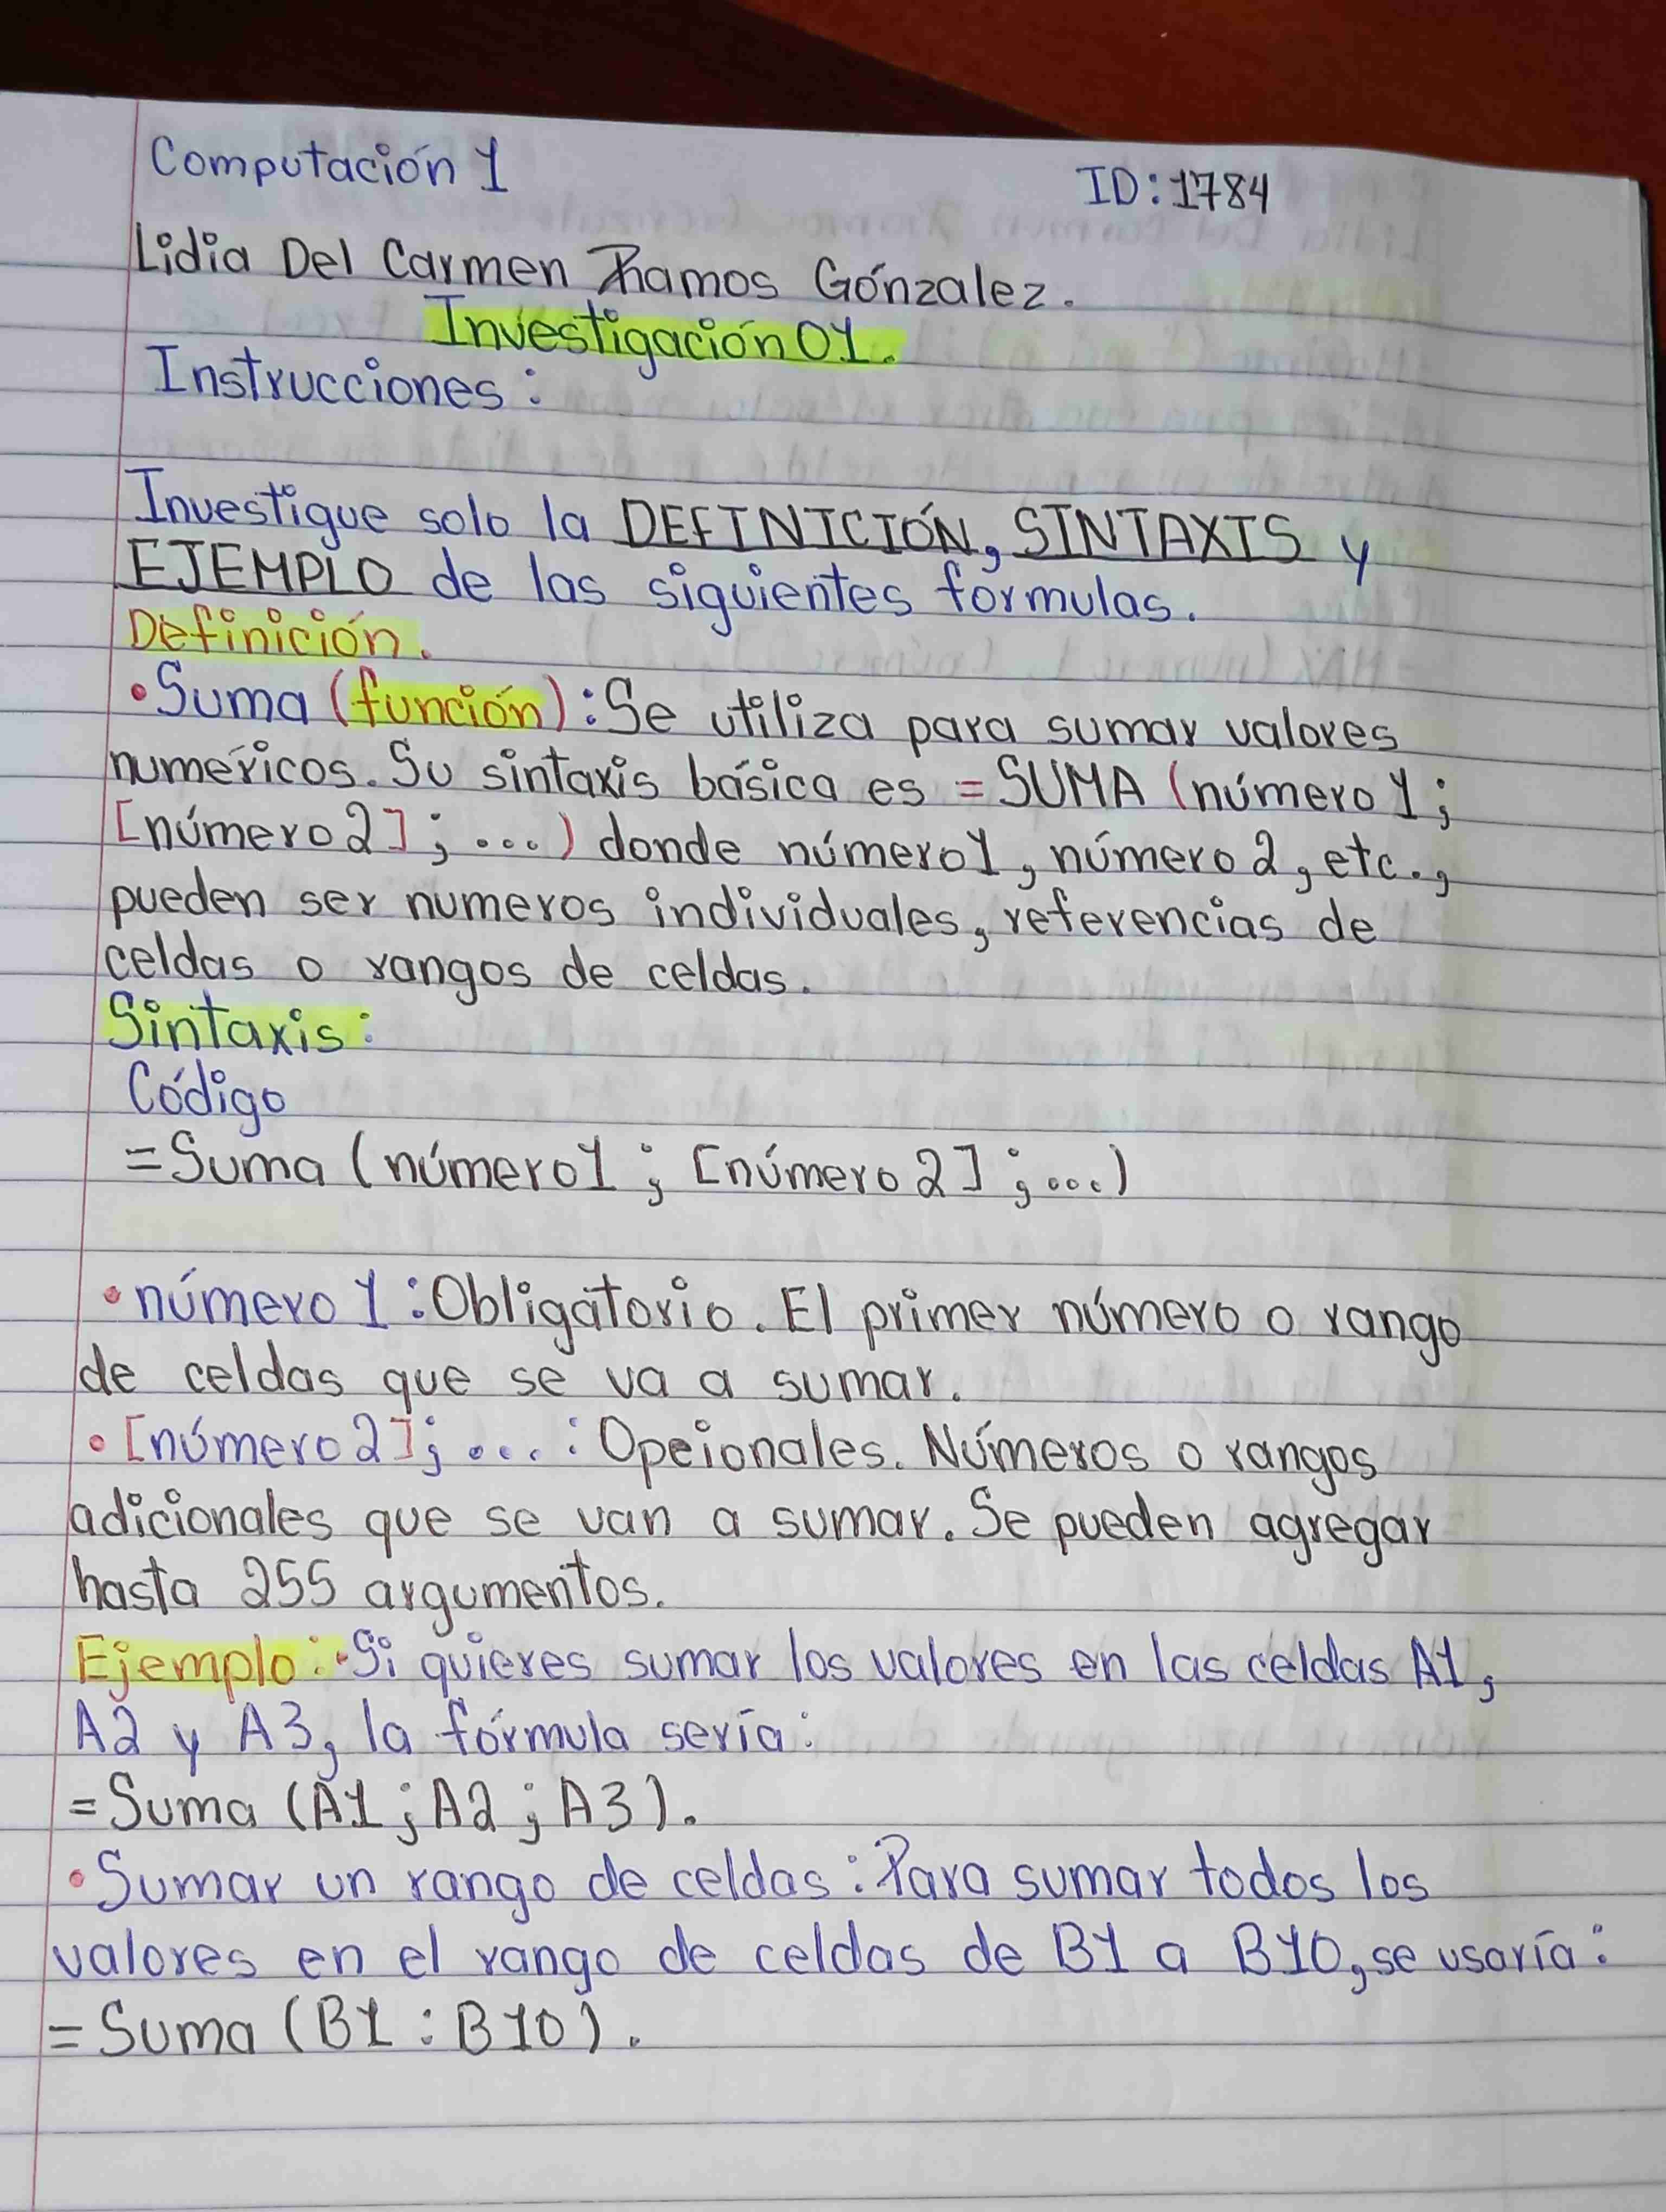 Computación 1
ID:1784
Lidia Del Carmen Ramos Gónzalez.
Investigación 01.
Instrucciones:
Investigue solo la DEFINICIÓN, SINTAXIS y
EJEMPLO de las siguientes fórmulas.
Definición.
•Suma (función): Se utiliza para sumar valores
numéricos. Su sintaxis básica es =SUMA (número 1;
[número 2]; ...) donde número1, número 2, etc.,
pueden ser numeros individuales, referencias de
celdas o rangos de celdas.
Sintaxis:
Código
=Suma (número1 ; [número 2] ; ...)
•número 1: Obligatorio. El primer número o rango
de celdas que se va a sumar.
•[número 2]; ... : Opeionales. Números o rangos
adicionales que se van a sumar. Se pueden agregar
hasta 255 argumentos.
Ejemplo: •Si quieres sumar los valores en las celdas A1,
A2 y A3, la fórmula sería:
=Suma (A1 ; A2 ; A3).
•Sumar un rango de celdas: Para sumar todos los
valores en el rango de celdas de B1 a B10, se usaría:
=Suma (B1 : B10).